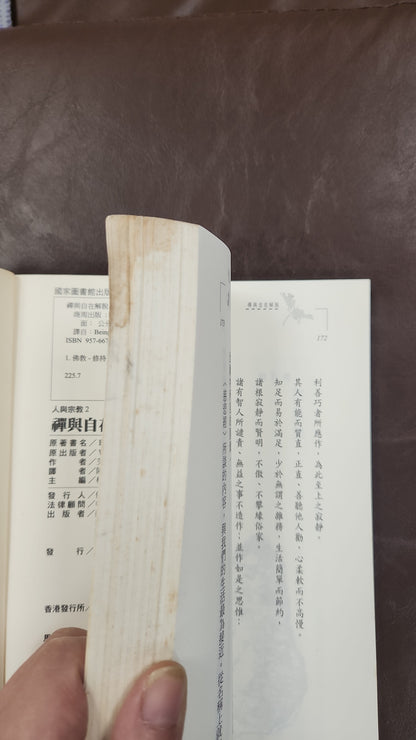 國家圖書館出版
禪與自在解脫
面； 公分
譯自：Being
ISBN 957-667
1. 佛教 - 修持
225.7
人與宗教 2
禪與自在
原著書名／
原出版者／
作者／
譯者／
主編／
發行人／
法律顧問／
出版者／
發行／
香港發行所／
禪與自在解脫
172
利善巧者所應作，為此至上之寂靜。
其人有能而質直，正直、善聽他人勸，心柔軟而不高慢。
知足而易於滿足，少於無謂之雜務，生活簡單而節約，
諸根寂靜而賢明，不傲、不攀緣俗家。
諸有智人所譴責、無益之事不造作；並作如是之思惟：